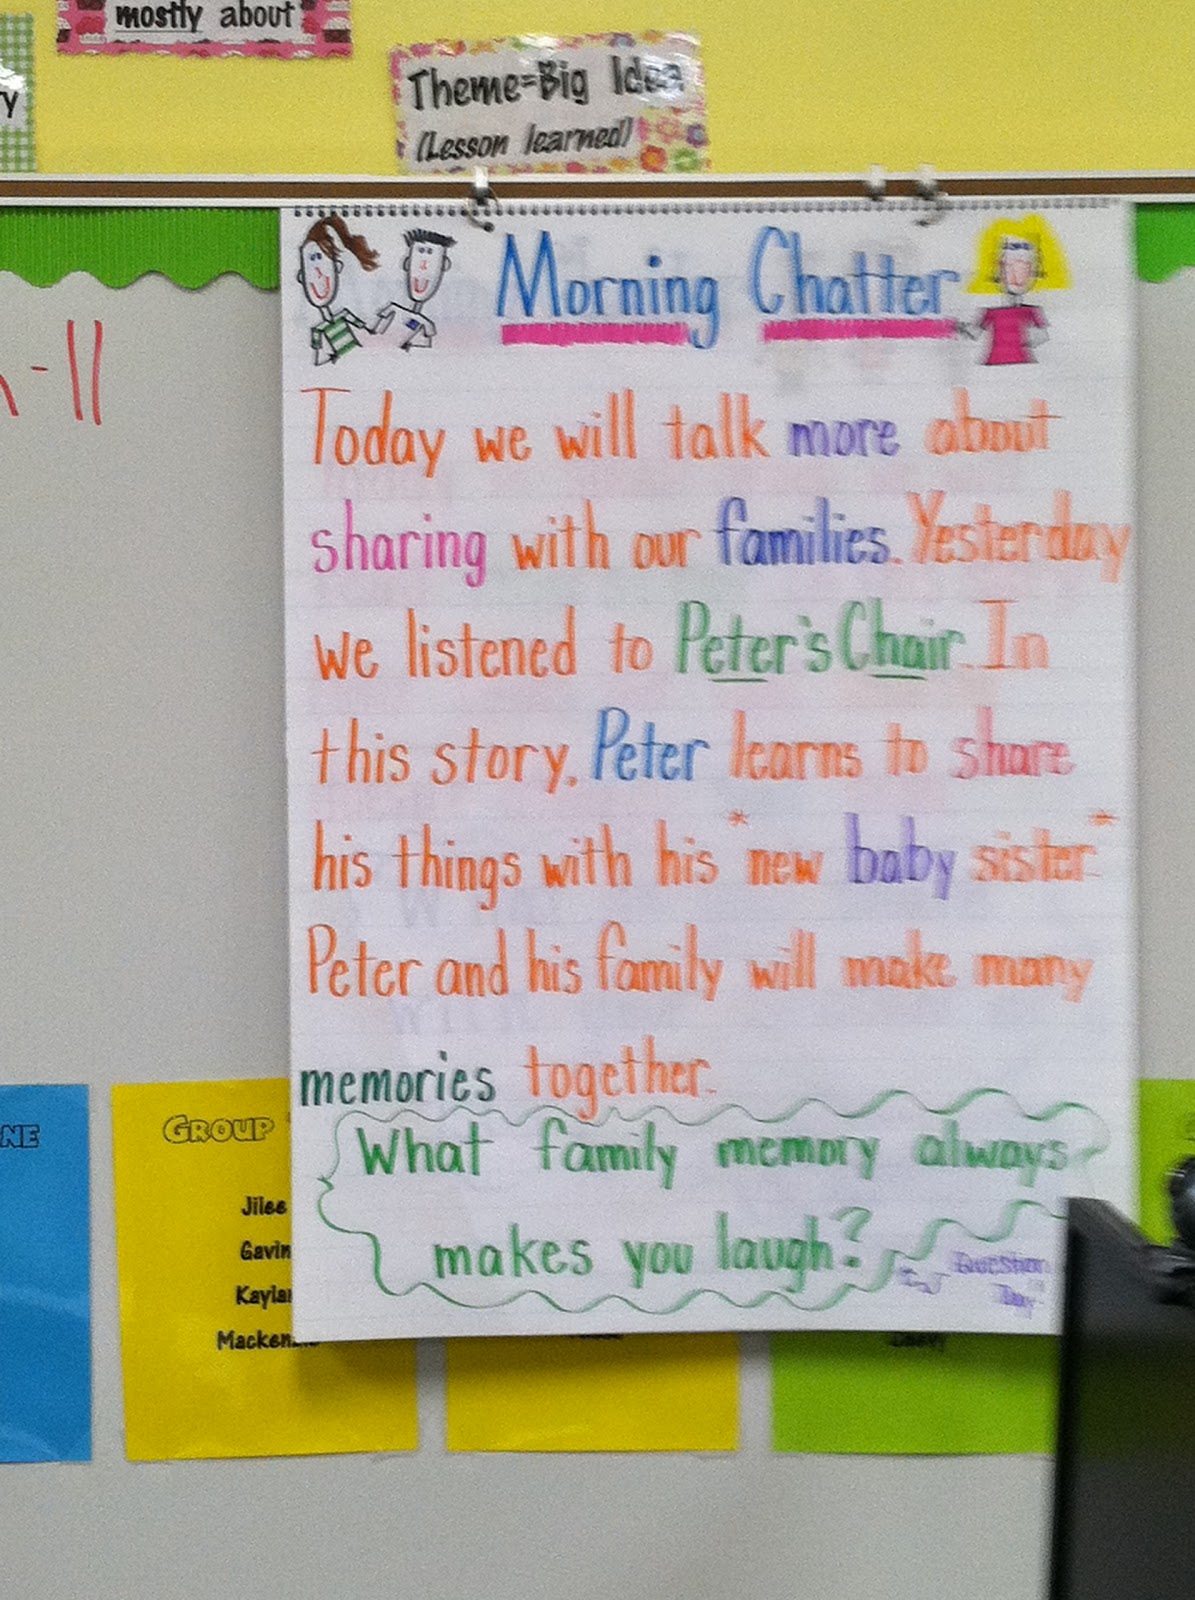 mostly about
Theme=Big Idea
(Lesson learned)
Morning Chatter
Today we will talk more about
sharing with our families. Yesterday
we listened to Peter's Chair. In
this story, Peter learns to share
his things with his *new baby sister*.
Peter and his family will make many
memories together.
What family memory always
makes you laugh?
Question
Day
-11
NE
GROUP
Jilee
Gavin
Kayla
Macken